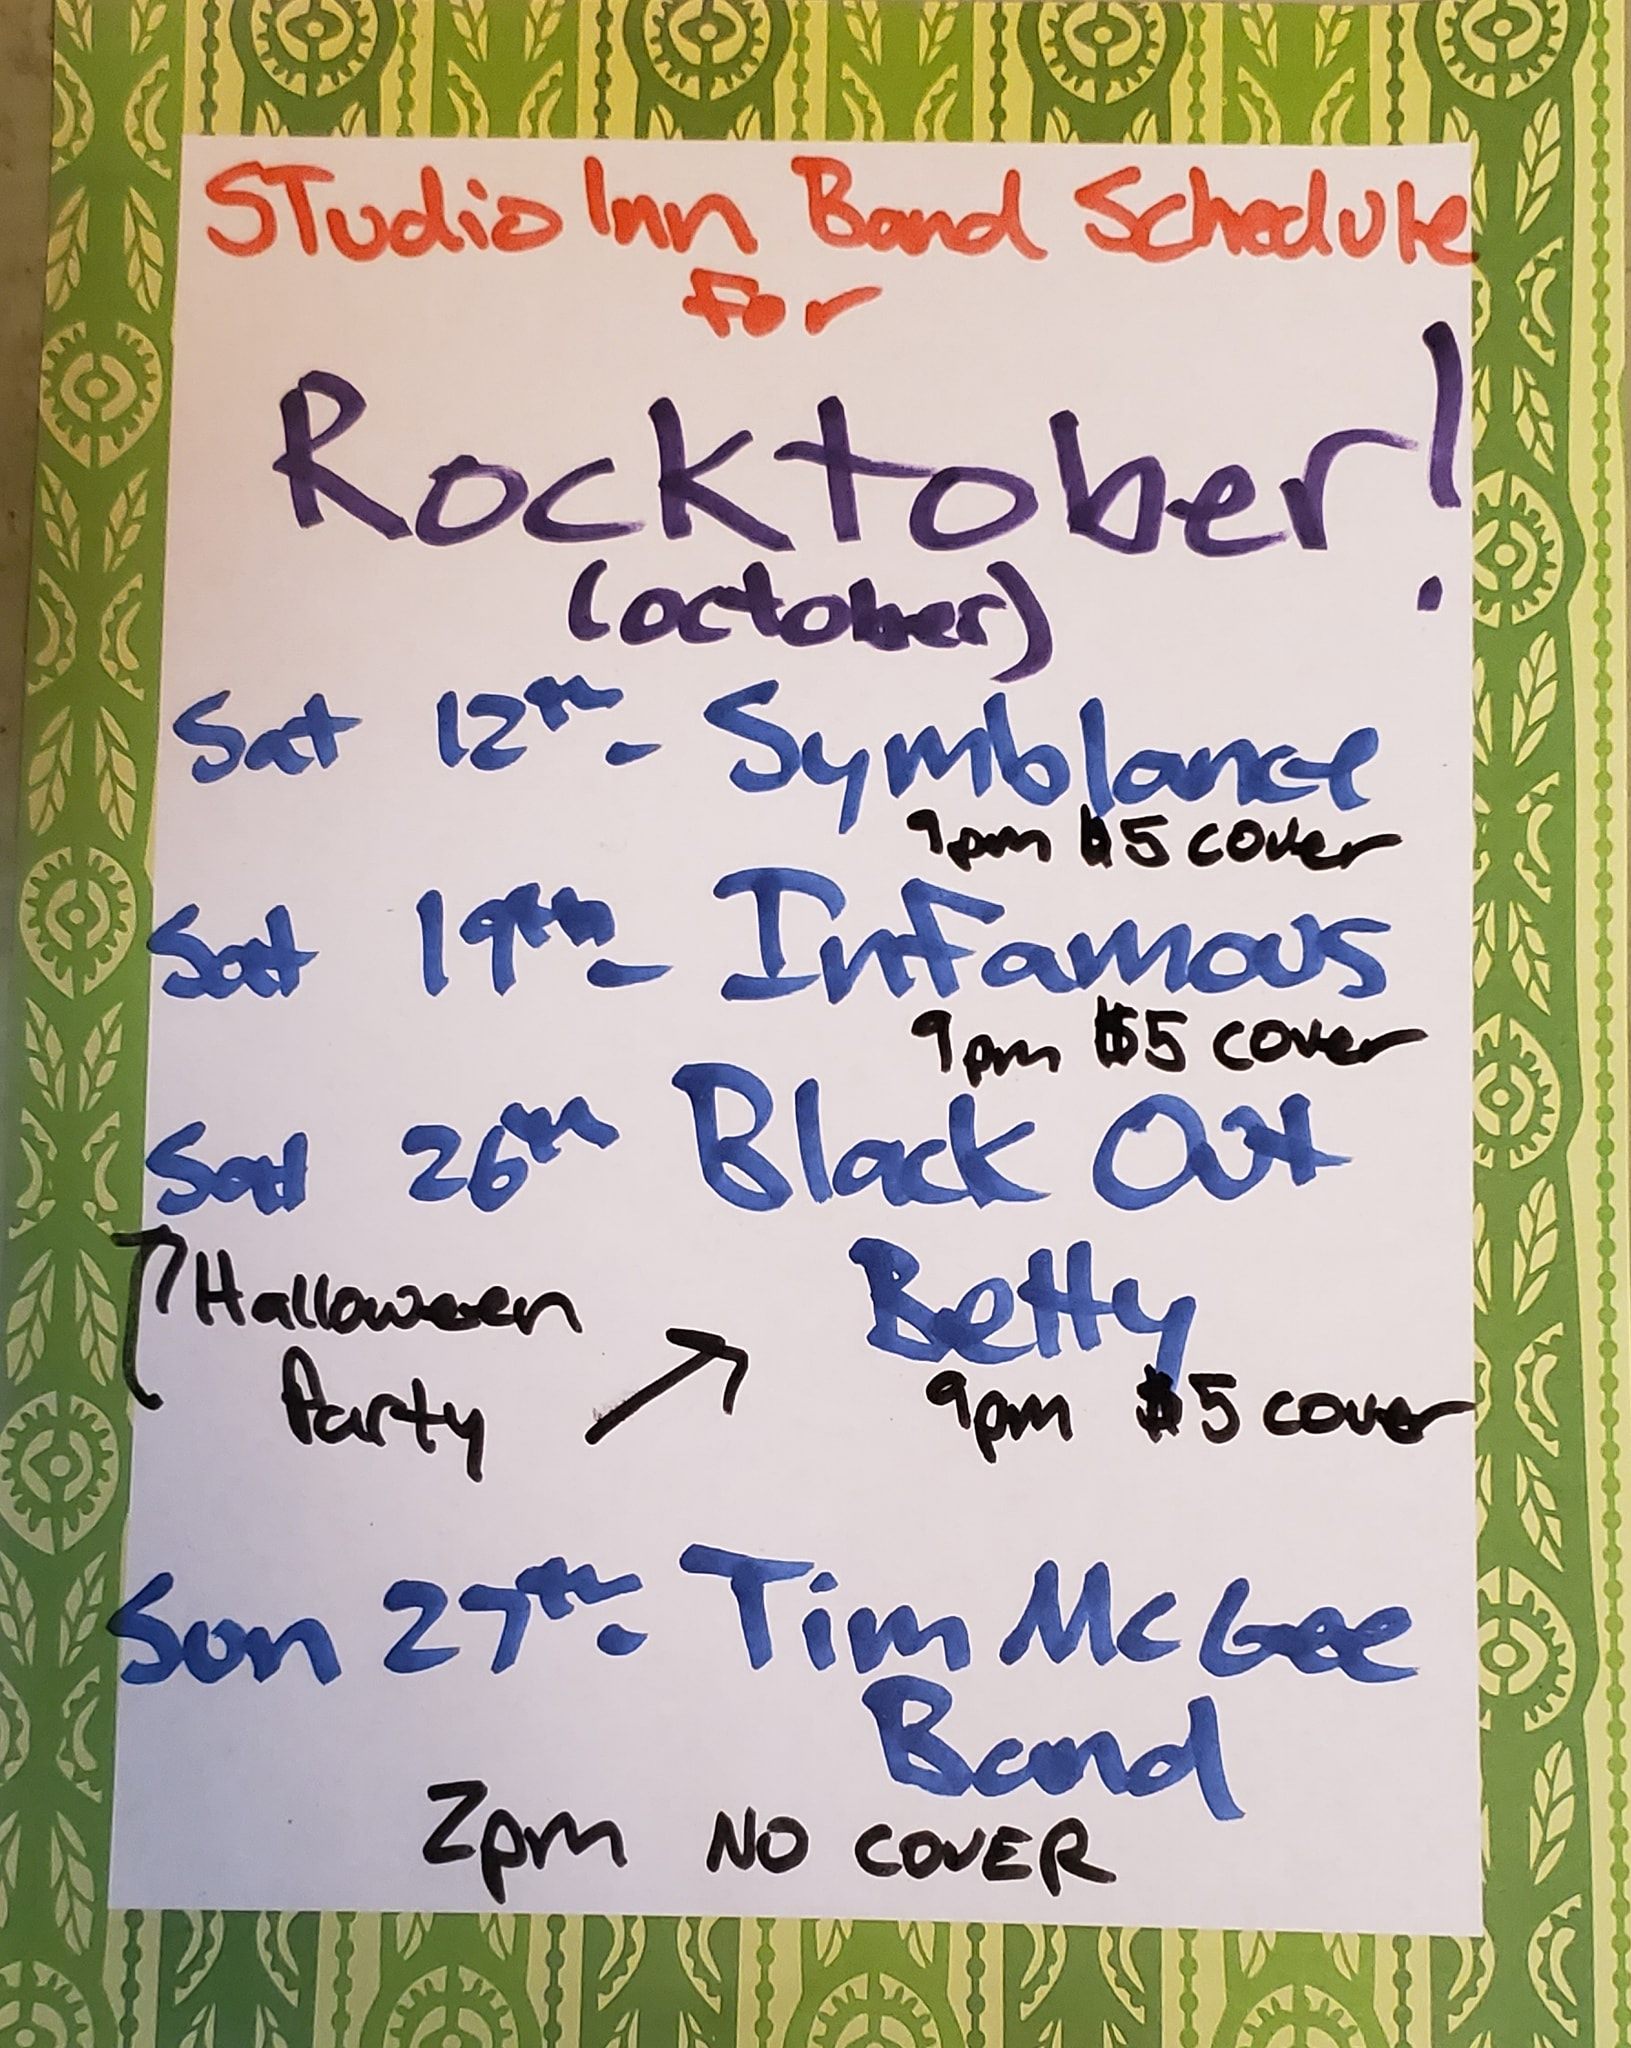 STudio Inn Band Schedule
For
Rocktober!
(october)
Sat 12th - Symblance
9pm $5 cover
Sat 19th - Infamous
9pm $5 cover
Sat 26th Black Out
Betty
Halloween
Party
9pm $5 cover
Sun 27th - Tim McGee
Band
2pm NO COVER